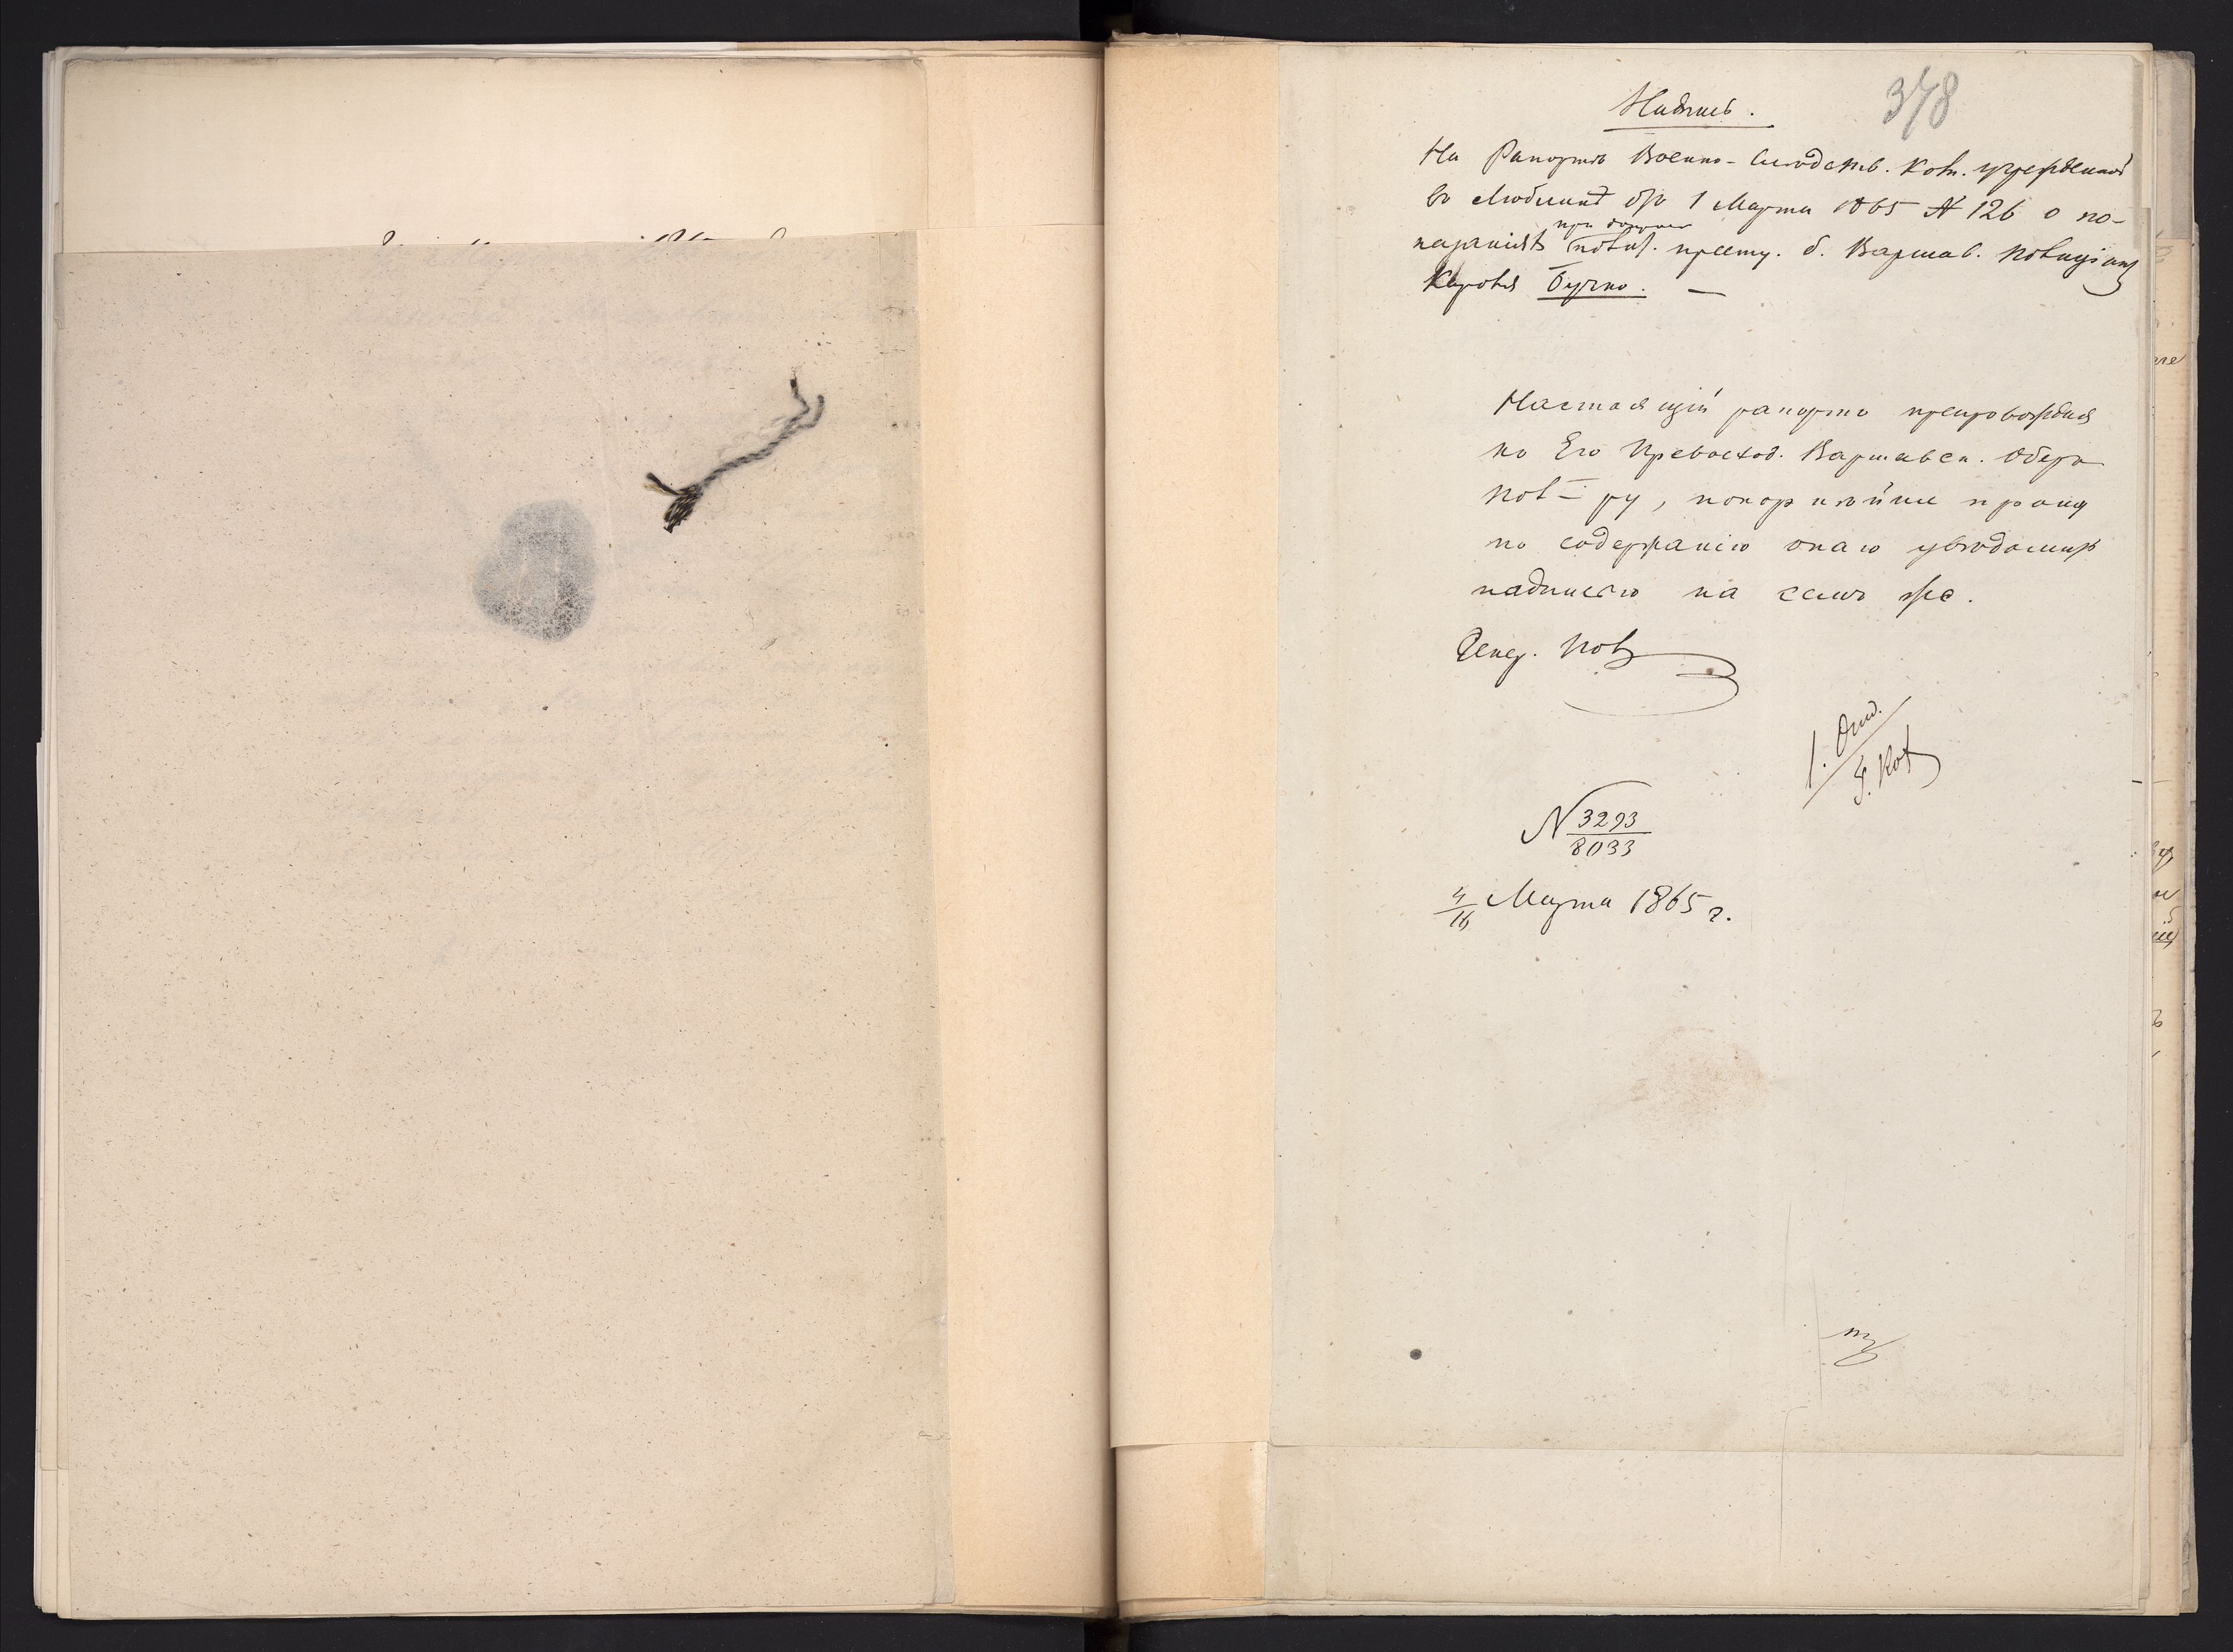 378
Надпись.
На Рапортѣ Военно-Слѣдств. Ком. учрежденной
въ Люблинѣ отъ 1 Марта 1865 № 126 о по-
казаніяхъ полит. прест. б. Варшав. полиціан.
Кароля Бучко. —
Настоящій рапортъ препровождая
къ Его Превосход. Варшавск. Оберъ
Пол-ру, покорнѣйше прошу
по содержанію онаго увѣдомить
надписью на семъ же.
Генер. Пол
1. Отд.
№ 3293
8033
4/16 Марта 1865 г.